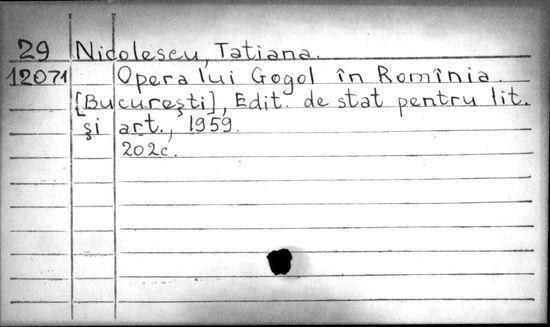 29 Nicolescu, Tatiana.
12071 Opera lui Gogol în Romînia.
[Bucureşti], Edit. de stat pentru lit.
şi art., 1959.
202c.